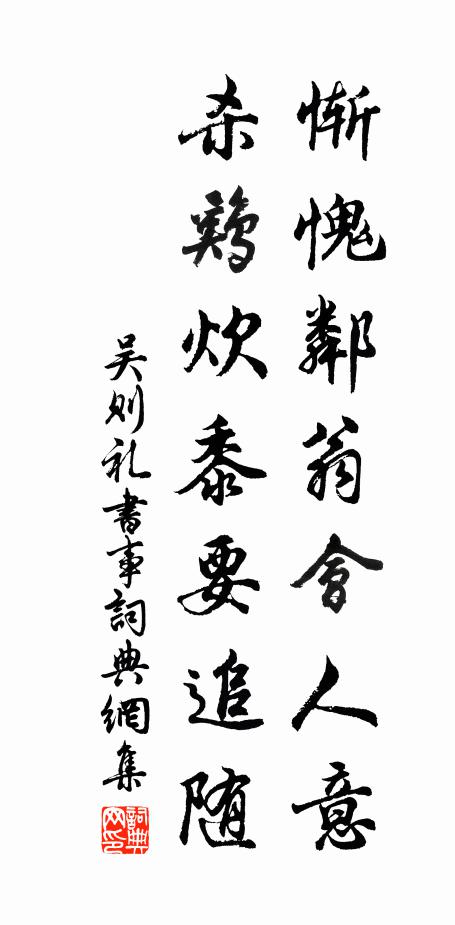 慚愧鄰翁會人意
杀鷄炊黍要追随
吴则礼書事詞典網集
詞典网印